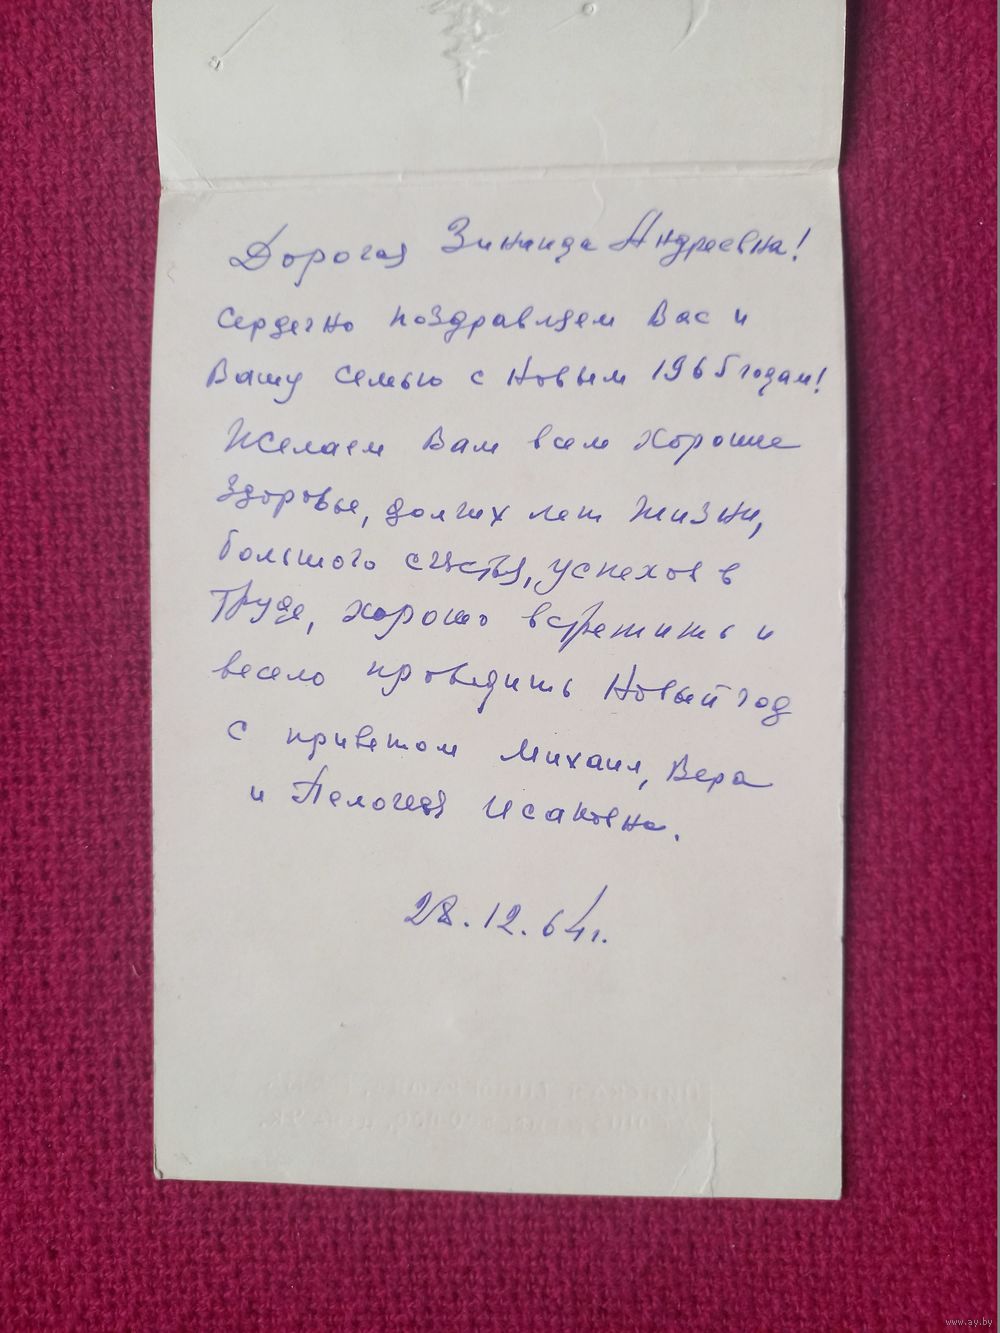 Дорогая Зинаида Андреевна!
Сердечно поздравляем Вас и
Вашу семью с Новым 1965 годам!
Желаем Вам всем хороше
здоровье, долгих лет жизни,
большого счастья, успехов в
труде, хорошо встретить и
весело проведить Новый год
С приветом Михаил, Вера
и Исаковна.
28.12.64г.
www.ay.by